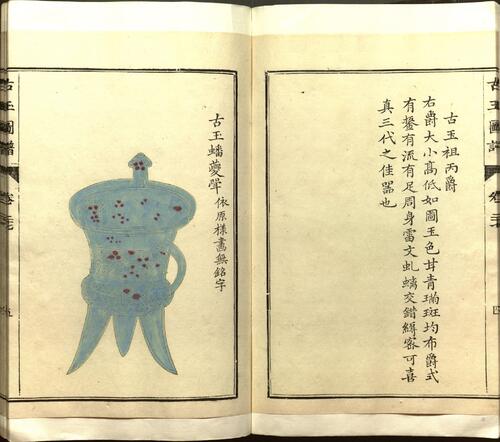 古玉圖譜
四
古玉祖丙爵
右爵大小高低如圖玉色甘青璊斑均布爵式
有鋬有流有足周身雷文虬螭交錯縟密可喜
真三代之佳器也
古玉蟠夔斝 依原樣畫無銘字
古玉圖譜
五